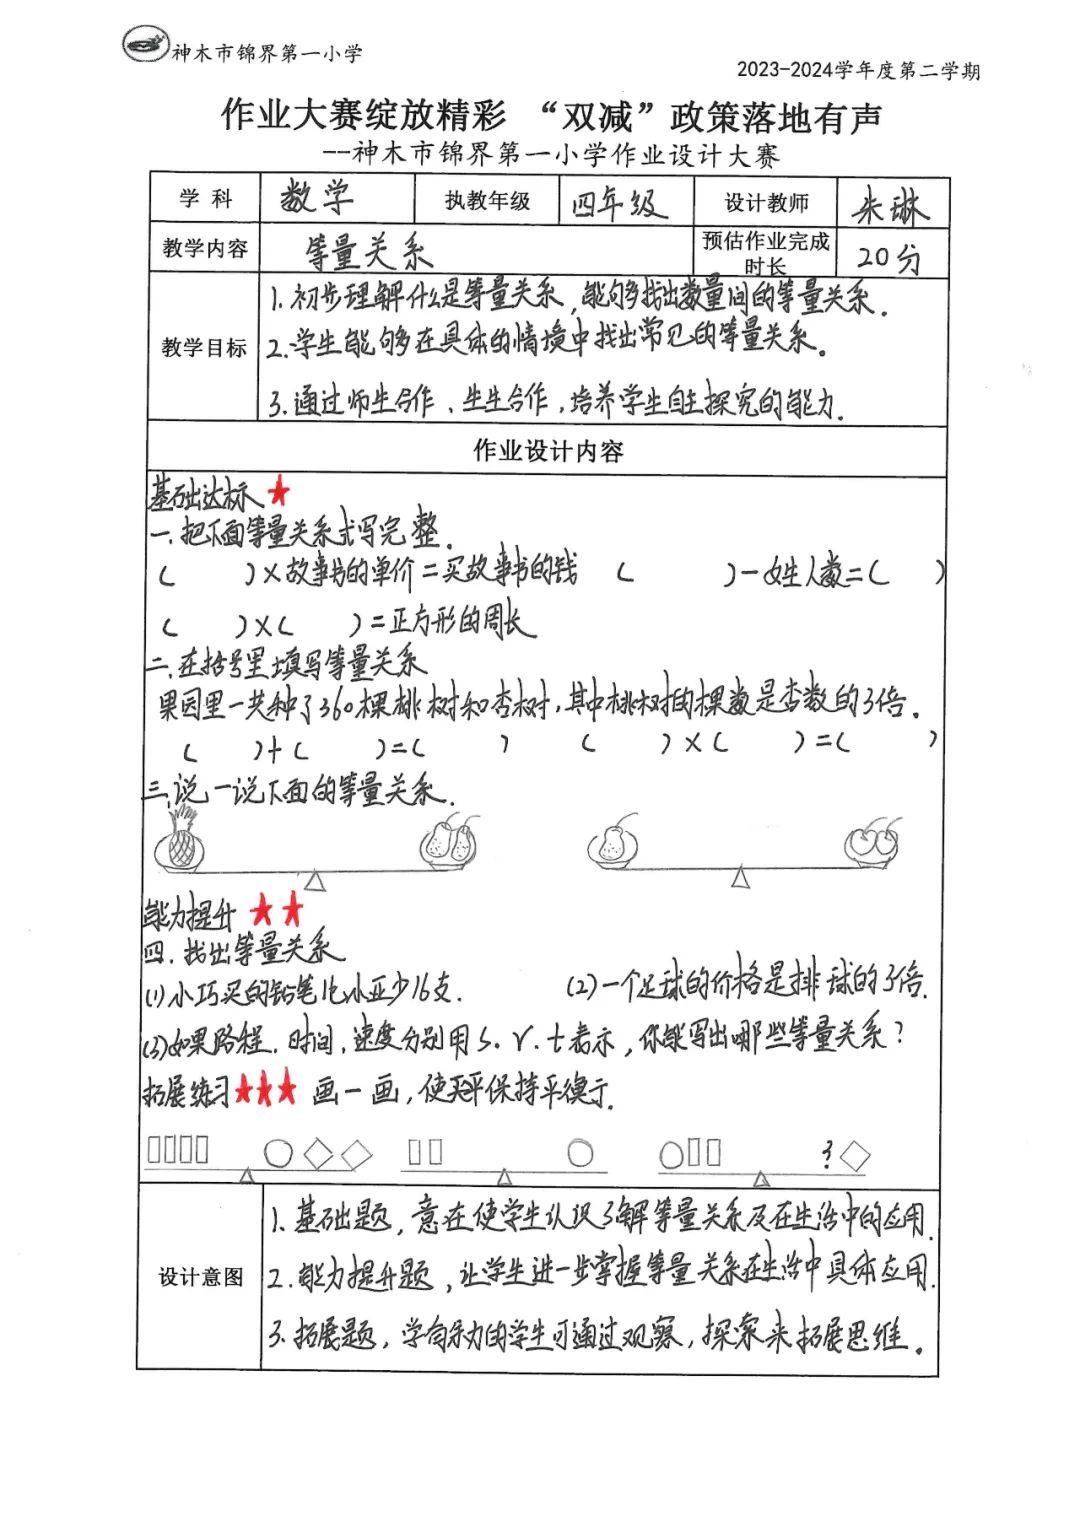 神木市锦界第一小学
2023-2024学年度第二学期
作业大赛绽放精彩 “双减”政策落地有声
--神木市锦界第一小学作业设计大赛
学 科 数学 执教年级 四年级 设计教师 朱琳
教学内容 等量关系 预估作业完成时长 20分
教学目标
1.初步理解什么是等量关系,能够找出数量间的等量关系.
2.学生能够在具体的情境中找出常见的等量关系。
3.通过师生合作、生生合作,培养学生自主探究的能力.
作业设计内容
基础达标★
一.把下面等量关系式写完整.
( )×故事书的单价=买故事书的钱 ( )-女生人数=( )
( )×( )=正方形的周长
二.在括号里填写等量关系
果园里一共种了360棵桃树和杏树,其中桃树的棵数是杏数的3倍.
( )+( )=( ) ( )×( )=( )
三.说一说下面的等量关系.
能力提升 ★★
四.找出等量关系
(1)小巧买的铅笔比小亚少16支. (2)一个足球的价格是排球的3倍.
(3)如果路程.时间.速度分别用S.V.t表示,你能写出哪些等量关系?
拓展练习★★★ 画一画,使天平保持平衡.
?
设计意图
1.基础题,意在使学生认识了解等量关系及在生活中的应用.
2.能力提升题,让学生进一步掌握等量关系在生活中具体应用.
3.拓展题,学有余力的学生可通过观察,探索来拓展思维.